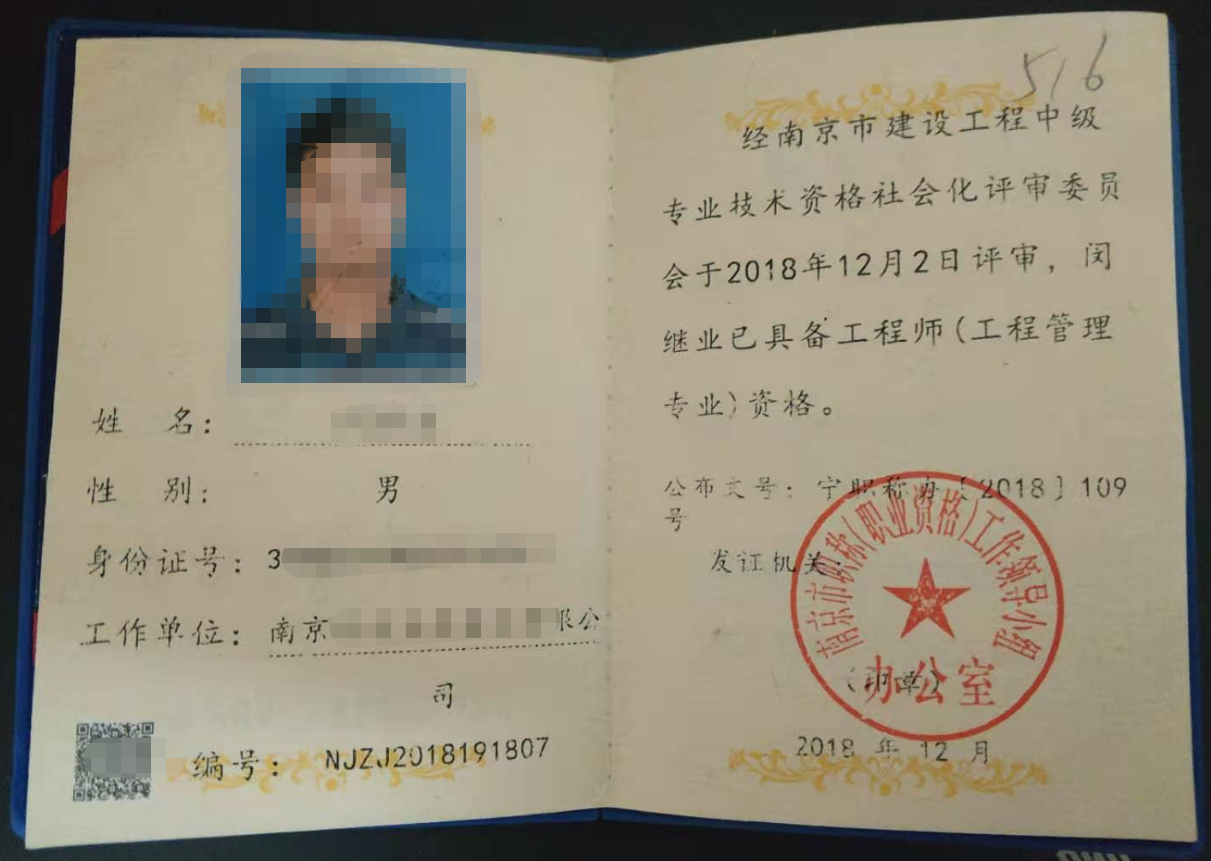 姓 名：
性 别： 男
身份证号： 3
工作单位： 南京 限公
司
编号： NJZJ2018191807
516
经南京市建设工程中级
专业技术资格社会化评审委员
会于2018年12月2日评审，闵
继业已具备工程师(工程管理
专业)资格。
公布文号：宁职称办〔2018〕109
号
发证机关：
南京市职称(职业资格)工作领导小组
办公室
(印章)
2018 年 12 月